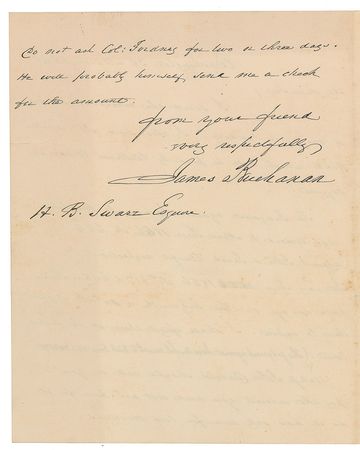 Do not ask Col: Fordney for two or three days.
He will probably himself send me a check
for the amount.
from your friend
very respectfully
James Buchanan
H. B. Swarr Esquire.